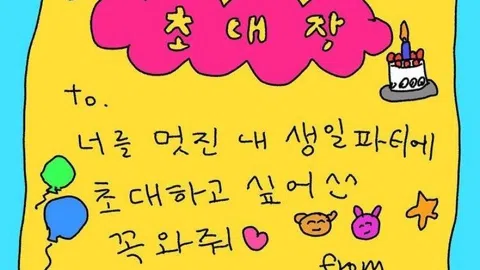 초대장
to.
너를 멋진 내 생일파티에
초대하고 싶어^^
꼭 와줘
from